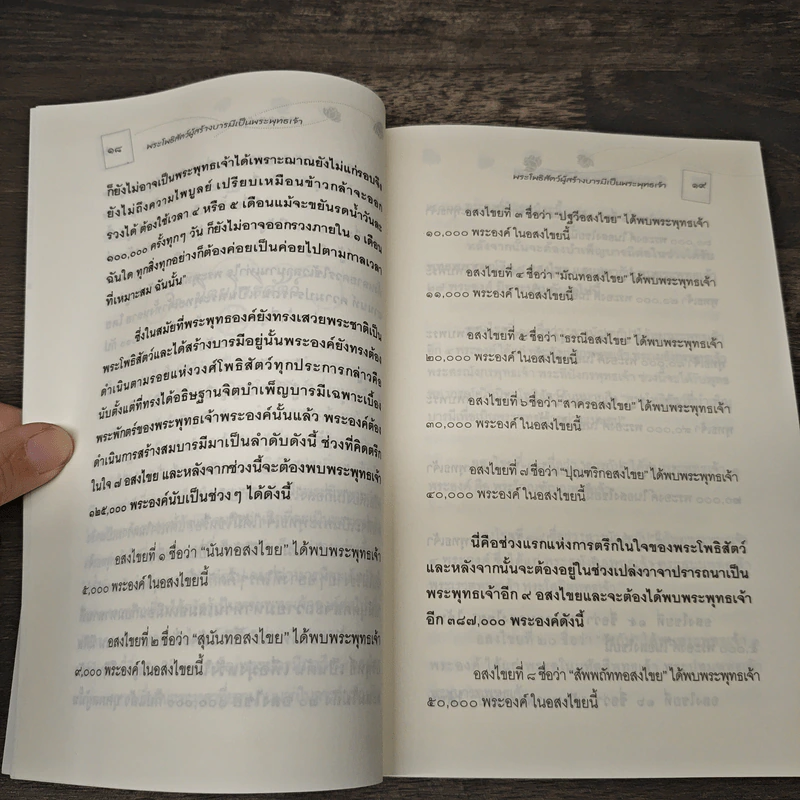 ๑๘
พระโพธิสัตว์ผู้สร้างบารมีเป็นพระพุทธเจ้า
ก็ยังไม่อาจเป็นพระพุทธเจ้าได้เพราะฌาณยังไม่แก่รอบจึง
ยังไม่ถึงความไพบูลย์ เปรียบเหมือนข้าวกล้าจะออก
รวงได้ ต้องใช้เวลา ๔ หรือ ๕ เดือนแม้จะขยันรดน้ำวันละ
๑๐๐,๐๐๐ ครั้งทุกๆ วัน ก็ยังไม่อาจออกรวงภายใน ๑ เดือน
ฉันใด ทุกสิ่งทุกอย่างก็ต้องค่อยเป็นค่อยไปตามกาลเวลา
ที่เหมาะสม ฉันนั้น"
ซึ่งในสมัยที่พระพุทธองค์ยังทรงเสวยพระชาติเป็น
พระโพธิสัตว์และได้สร้างบารมีอยู่นั้นพระองค์ยังทรงต้อง
ดำเนินตามรอยแห่งวงศ์โพธิสัตว์ทุกประการกล่าวคือ
นับตั้งแต่ที่ทรงได้อธิษฐานจิตบำเพ็ญบารมีเฉพาะเบื้อง
พระพักตร์ของพระพุทธเจ้าพระองค์นั้นแล้ว พระองค์ต้อง
ดำเนินการสร้างสมบารมีมาเป็นลำดับดังนี้ ช่วงที่คิดตรึก
ในใจ ๗ อสงไขย และหลังจากช่วงนี้จะต้องพบพระพุทธเจ้า
๑๒๕,๐๐๐ พระองค์นับเป็นช่วงๆ ได้ดังนี้
อสงไขยที่ ๑ ชื่อว่า "นันทอสงไขย" ได้พบพระพุทธเจ้า
๕,๐๐๐ พระองค์ ในอสงไขยนี้
อสงไขยที่ ๒ ชื่อว่า "สุนันทอสงไขย" ได้พบพระพุทธเจ้า
๙,๐๐๐ พระองค์ ในอสงไขยนี้
พระโพธิสัตว์ผู้สร้างบารมีเป็นพระพุทธเจ้า
๑๙
อสงไขยที่ ๓ ชื่อว่า "ปฐวีอสงไขย" ได้พบพระพุทธเจ้า
๑๐,๐๐๐ พระองค์ ในอสงไขยนี้
อสงไขยที่ ๔ ชื่อว่า "มัณฑอสงไขย" ได้พบพระพุทธเจ้า
๑๑,๐๐๐ พระองค์ ในอสงไขยนี้
อสงไขยที่ ๕ ชื่อว่า "ธรณีอสงไขย" ได้พบพระพุทธเจ้า
๒๐,๐๐๐ พระองค์ ในอสงไขยนี้
อสงไขยที่ ๖ ชื่อว่า "สาครอสงไขย" ได้พบพระพุทธเจ้า
๓๐,๐๐๐ พระองค์ ในอสงไขยนี้
อสงไขยที่ ๗ ชื่อว่า "ปุณฑริกอสงไขย" ได้พบพระพุทธเจ้า
๔๐,๐๐๐ พระองค์ ในอสงไขยนี้
นี่คือช่วงแรกแห่งการตรึกในใจของพระโพธิสัตว์
และหลังจากนั้นจะต้องอยู่ในช่วงเปล่งวาจาปรารถนาเป็น
พระพุทธเจ้าอีก ๙ อสงไขยและจะต้องได้พบพระพุทธเจ้า
อีก ๓๘๗,๐๐๐ พระองค์ดังนี้
อสงไขยที่ ๘ ชื่อว่า "สัพพภัททอสงไขย" ได้พบพระพุทธเจ้า
๕๐,๐๐๐ พระองค์ ในอสงไขยนี้